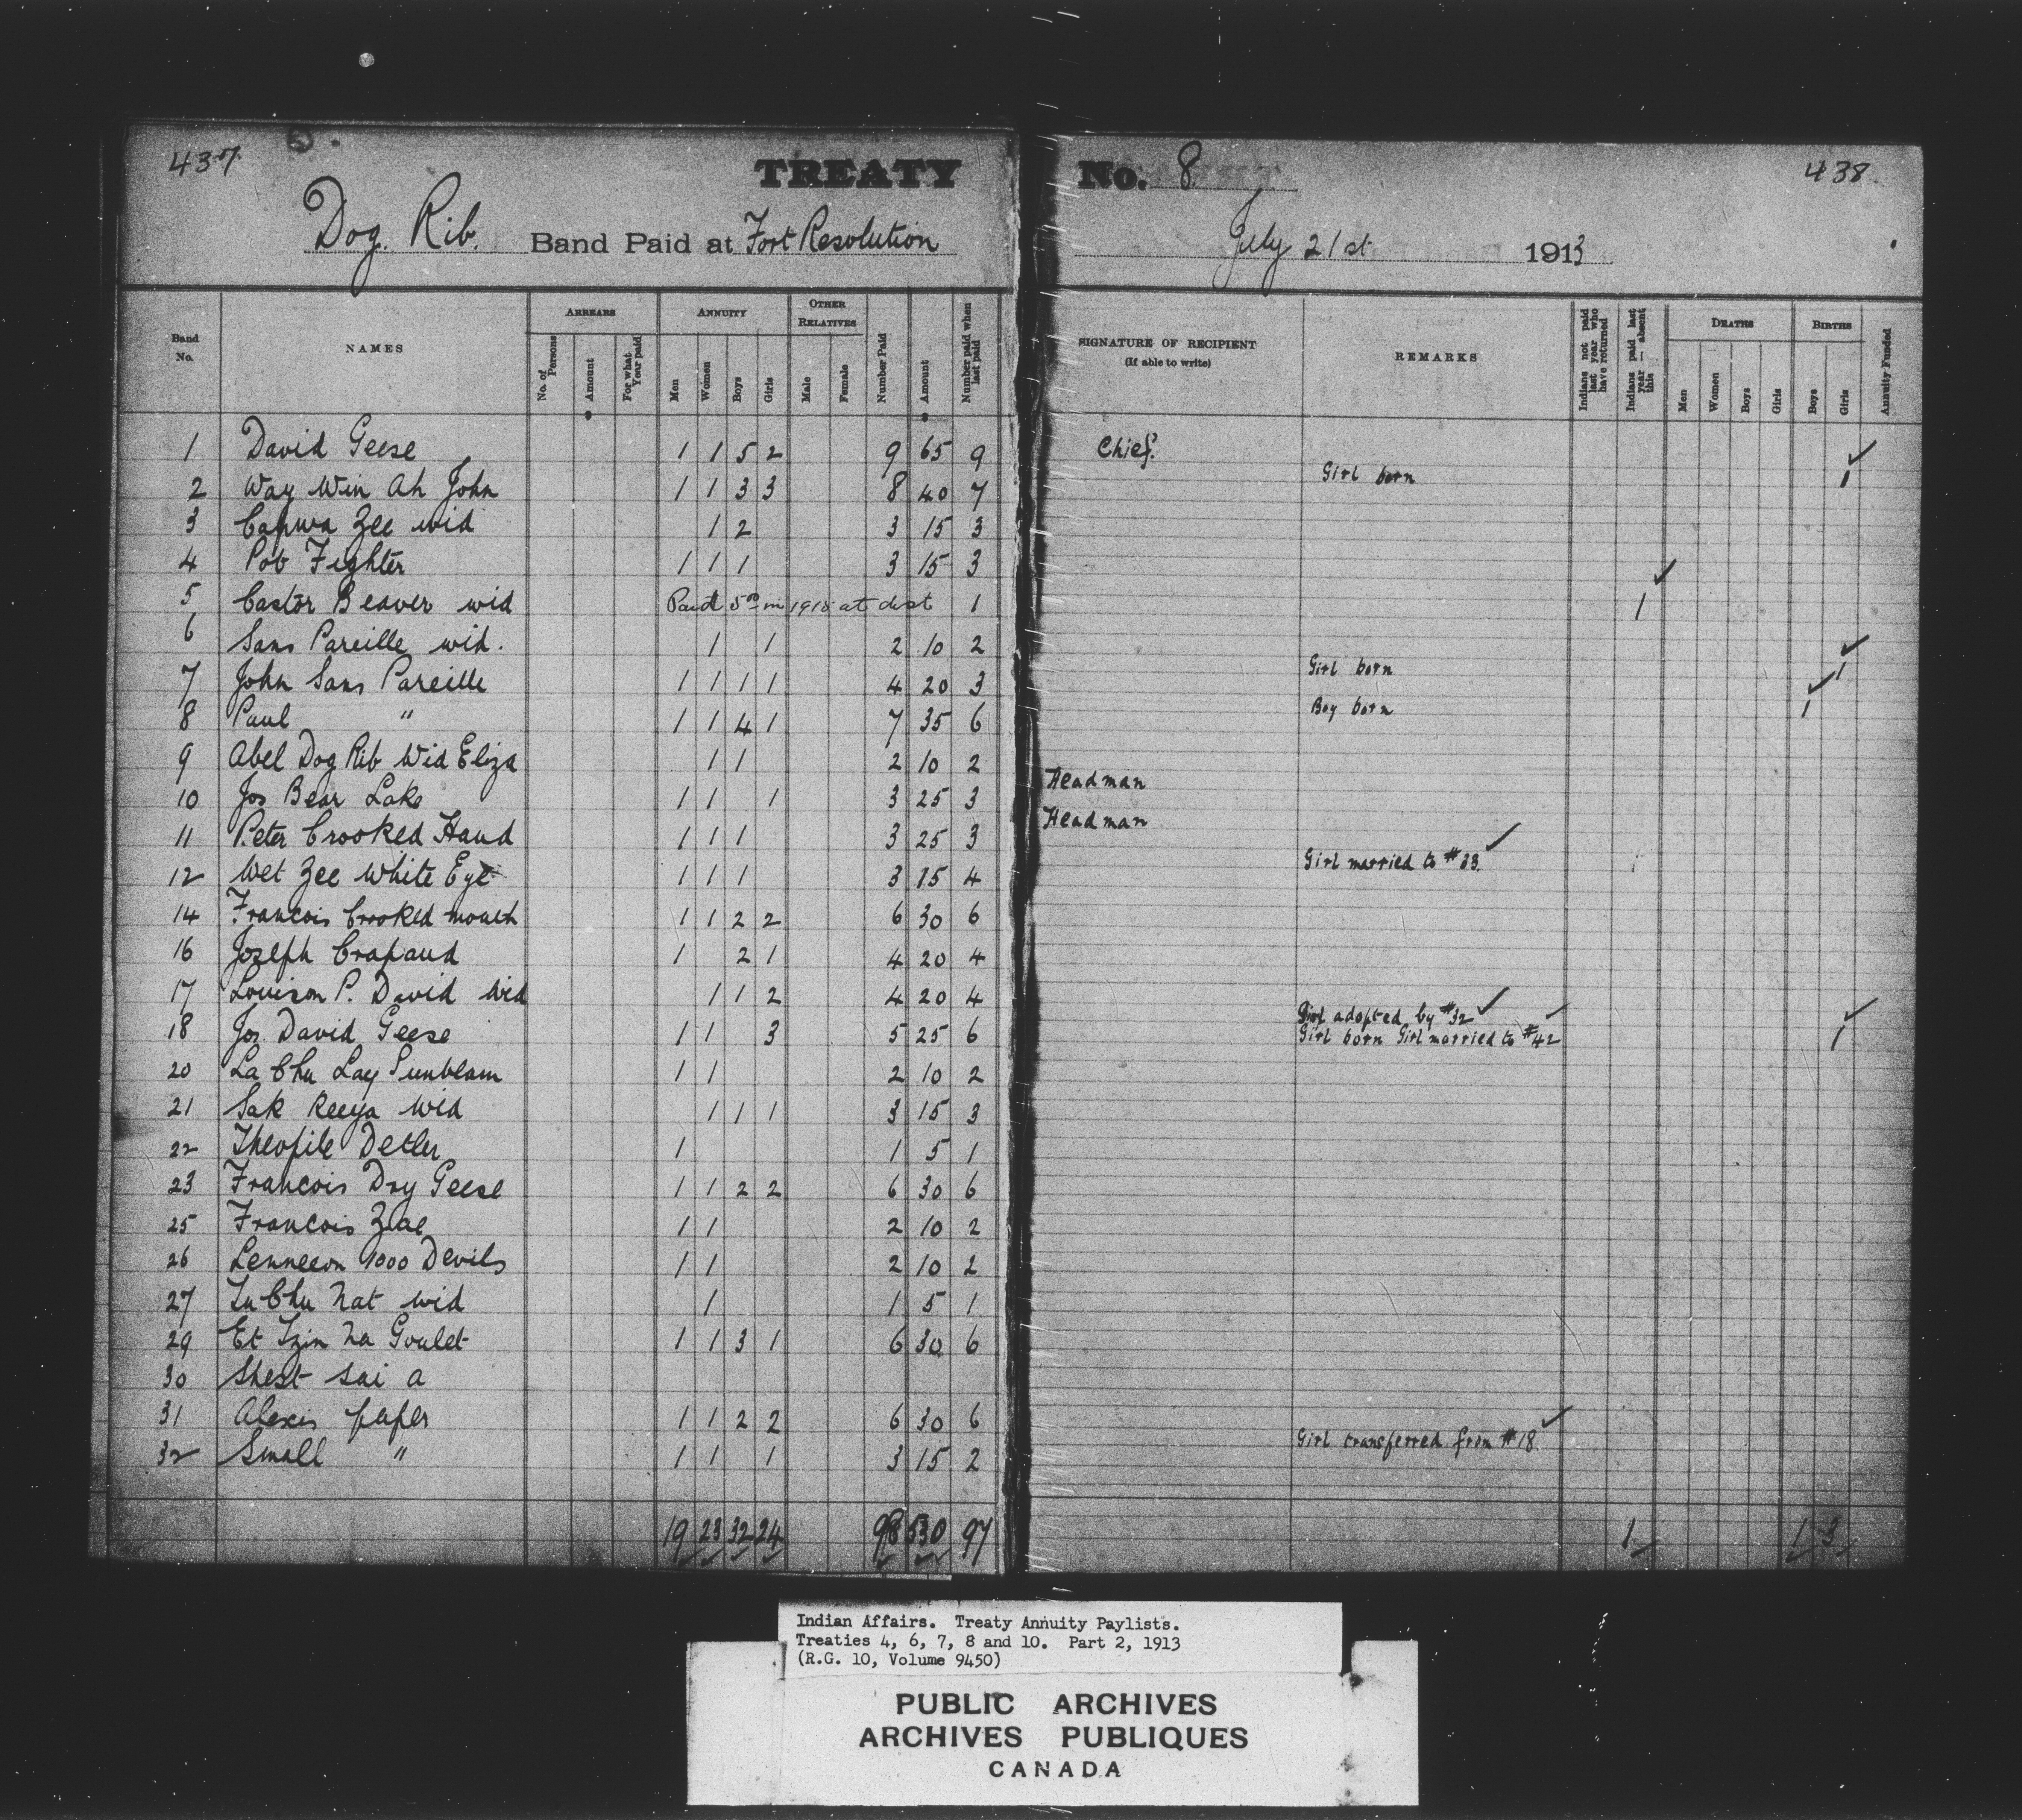 437
TREATY
No. 8
438
Dog Rib Band Paid at Fort Resolution
July 21st 1913
Band No. NAMES ARREARS No. of Persons Amount For what Year paid ANNUITY Men Women Boys Girls OTHER RELATIVES Male Female Number Paid Amount Number paid when last paid
SIGNATURE OF RECIPIENT (If able to write) REMARKS Indians not paid last year who have returned Indians paid last year — absent this DEATHS Men Women Boys Girls BIRTHS Boys Girls Annuity Funded
1 David Geese 1 1 5 2 9 65 9 Chief.
2 Way Win Ah John 1 1 3 3 8 40 7 Girl born 1
3 Capwa Zee wid 1 2 3 15 3
4 Pob Fighter 1 1 1 3 15 3
5 Castor Beaver wid Paid 5.00 in at dist 1 1
6 Sans Pareille wid. 1 1 2 10 2
7 John Sans Pareille 1 1 1 1 4 20 3 Girl born 1
8 Paul " 1 1 4 1 7 35 6 Boy born 1
9 Abel Dog Rib Wid Eliza 1 1 2 10 2
10 Jos Bear Lake 1 1 1 3 25 3 Headman
11 Peter Crooked Hand 1 1 1 3 25 3 Headman
12 Wet Zee White Eye 1 1 1 3 15 4 Girl married to #
14 Francois Crooked mouth 1 1 2 2 6 30 6
16 Joseph Crapaud 1 2 1 4 20 4
17 Louison P. David Wid 1 1 2 4 20 4
Girl adopted by #32
18 Jos. David Geese 1 1 3 5 25 6 Girl born Girl married to #42 1
20 La Chu Lay Sunbeam 1 1 2 10 2
21 Sak Reeya Wid 1 1 1 3 15 3
22 Theofile Detler 1 1 5 1
23 Francois Dry Geese 1 1 2 2 6 30 6
25 Francois Zae 1 1 2 10 2
26 Lenneeon 1000 Devils 1 1 2 10 2
27 Lu Chu Nat wid 1 1 5 1
29 Et Tzin Na Goulet 1 1 3 1 6 30 6
30 Shest sai a
31 Alexis paper 1 1 2 2 6 30 6
32 Small " 1 1 1 3 15 2 Girl transferred from #18
19 23 32 24 98 530 97 1 1 3
Indian Affairs. Treaty Annuity Paylists.
Treaties 4, 6, 7, 8 and 10. Part 2, 1913
(R.G. 10, Volume 9450)
PUBLIC ARCHIVES
ARCHIVES PUBLIQUES
CANADA